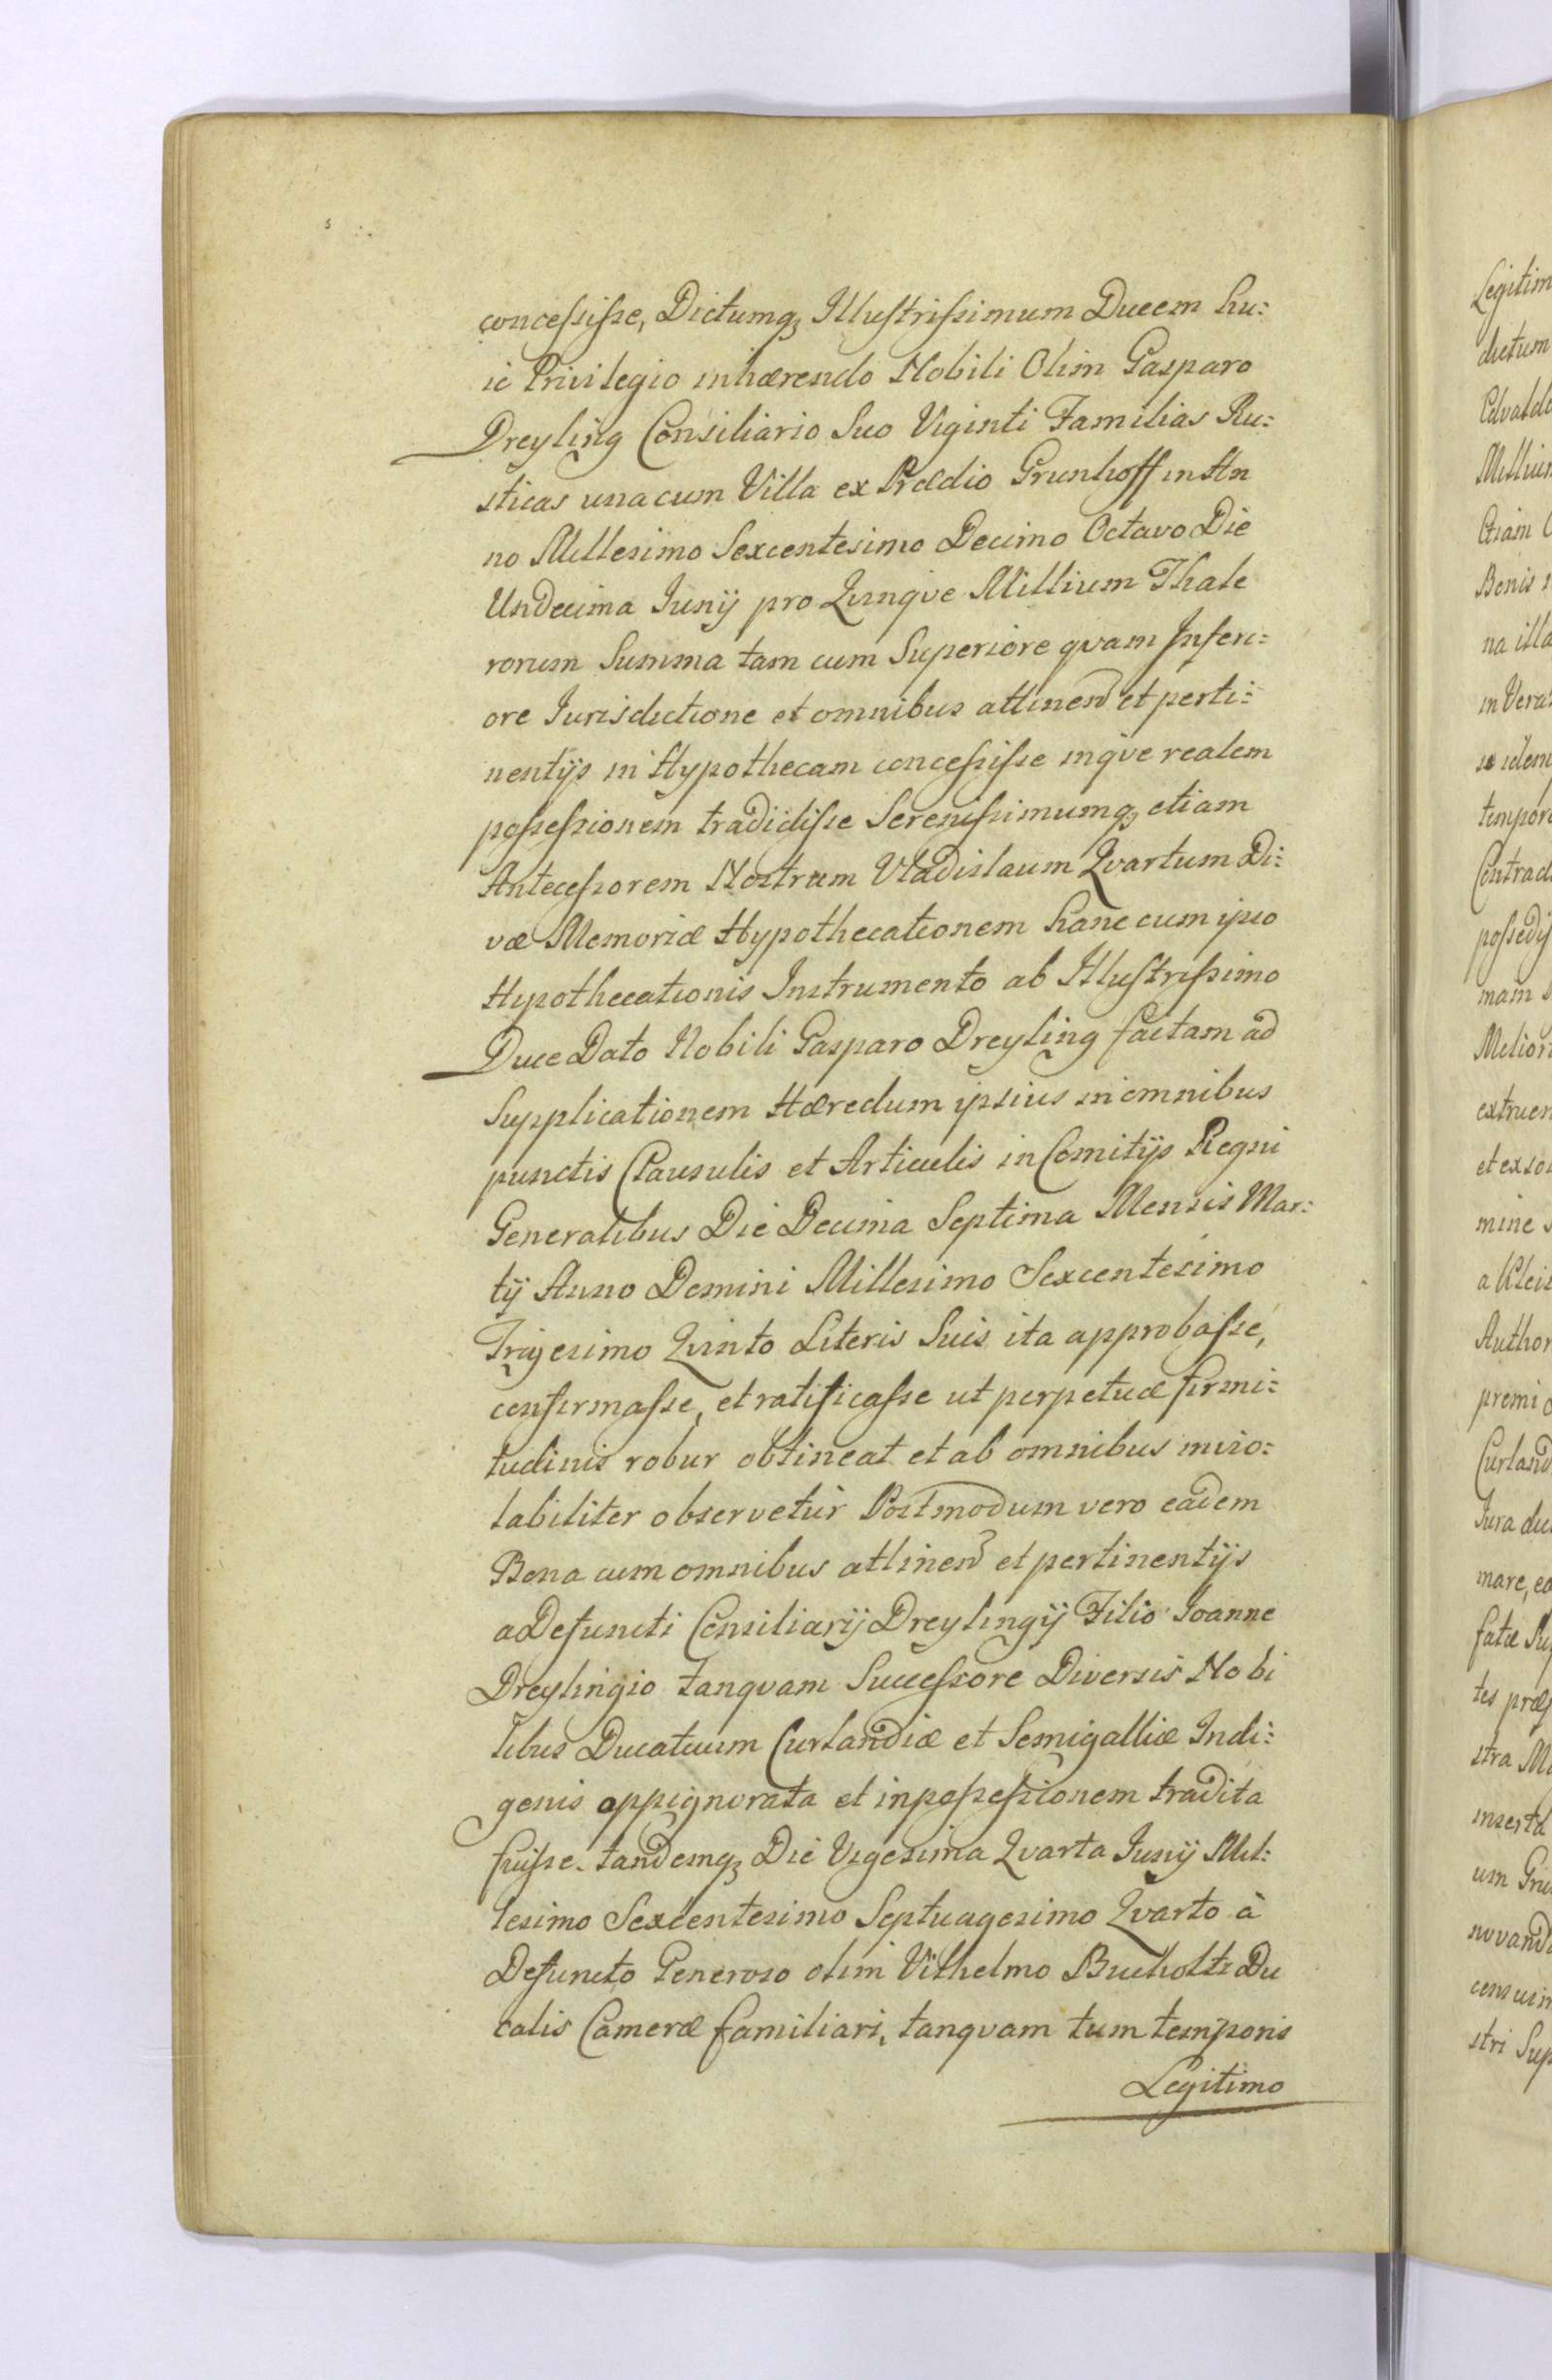 concessisse, Dictumq; Illustrissimum Ducem hu:
ic Privilegio inhærendo Nobili Olim Gasparo
Dreyling Consiliario Suo Viginti Familias Ru:
sticas una cum Villa ex Prædio Grunhoff in An
no Millesimo Sexcentesimo Decimo Octavo Die
Undecima Junij pro Qvinqve Millium Thale
rorum Summa tam cum Superiore qvam Inferi:
ore Jurisdictione et omnibus attinen et perti:
nentijs in Hypothecam concessisse inqve realem
possessionem tradidisse Serenissimumq; etiam
Antecessorem Nostrum Vladislaum Qvartum Di:
væ Memoriæ Hypothecationem hanc cum ipso
Hypothecationis Instrumento ab Illustrissimo
Duce Dato Nobili Gasparo Dreyling factam ad
Supplicationem Hæredum ipsius in omnibus
punctis Clausulis et Articulis in Comitijs Regni
Generalibus Die Decima Septima Mensis Mar:
tij Anno Domini Millesimo Sexcentesimo
Trigesimo Qvinto Literis Suis ita approbasse,
confirmasse, et ratificasse ut perpetuæ firmi:
tudinis robur obtineat et ab omnibus invio:
labiliter observetur Postmodum vero eadem
Bona cum omnibus attinen et pertinentijs
a Defuncti Consiliarij Dreylingij Filio Joanne
Dreylingio tanqvam Successore Diversis Nobi
libus Ducatuum Curlandiæ et Semigalliæ Indi:
genis oppignorata et in possessionem tradita
fuisse. tandemq; Die Vigesima Qvarta Junij Mil:
lesimo Sexcentesimo Septuagesimo Qvarto à
Defuncto Generoso olim Vilhelmo Bucholtz Du
calis Cameræ familiari, tanqvam tum temporis
Legitimo